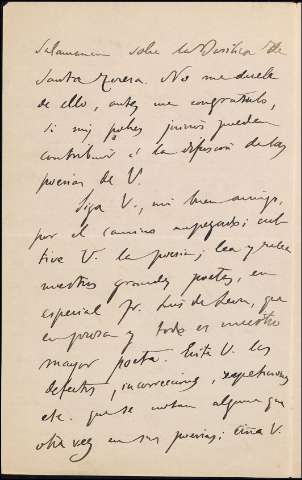 Salamanca sobre la Basílica de
Santa Teresa. No me duele
de ello, antes me congratulo,
si mis pobres juicios pueden
contribuir á la difusión de las
poesías de V.
Siga V., mi buen amigo,
por el camino empezado; cul-
tive V. la poesía; lea y relea
nuestros grandes poetas, en
especial Fr. Luis de León, que
en prosa y todo es nuestro
mayor poeta. Evite V. los
defectos, incorrecciones, repeticiones
etc. que se notan alguna que
otra vez en sus poesías; V.